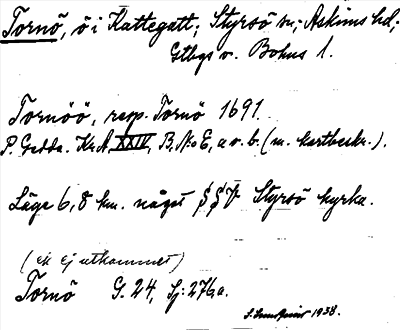 Tornö, ö i Kattegatt; Styrsö sn; Askims hd;
Gtbgs o. Bohus l.
Tornöö, resp. Tornö 1691
P. Gedda. Kr.A. XXIV, B. No E, a o. b. (m. kartbeskr.).
Läge 6,8 km. något S S V Styrsö kyrka.
(ek ej utkommet)
Tornö G. 24, Sj: 276a.
1938.